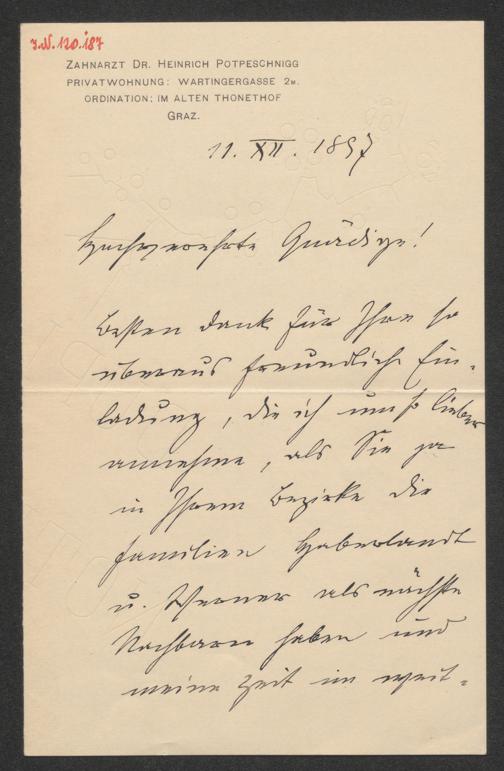 J.N. 120.187
ZAHNARZT DR. HEINRICH POTPESCHNIGG
PRIVATWOHNUNG: WARTINGERGASSE 2M.
ORDINATION: IM ALTEN THONETHOF
GRAZ.
11. XII. 1897
Hochverehrte Gnädige!
Besten Dank für Ihre so
überaus freundliche Ein-
ladung, die ich um so lieber
annehme, als Sie ja
in Ihrem Bezirke die
Familien Haberlandt
u. Werner als nächste
Nachbarn haben und
meine Zeit im